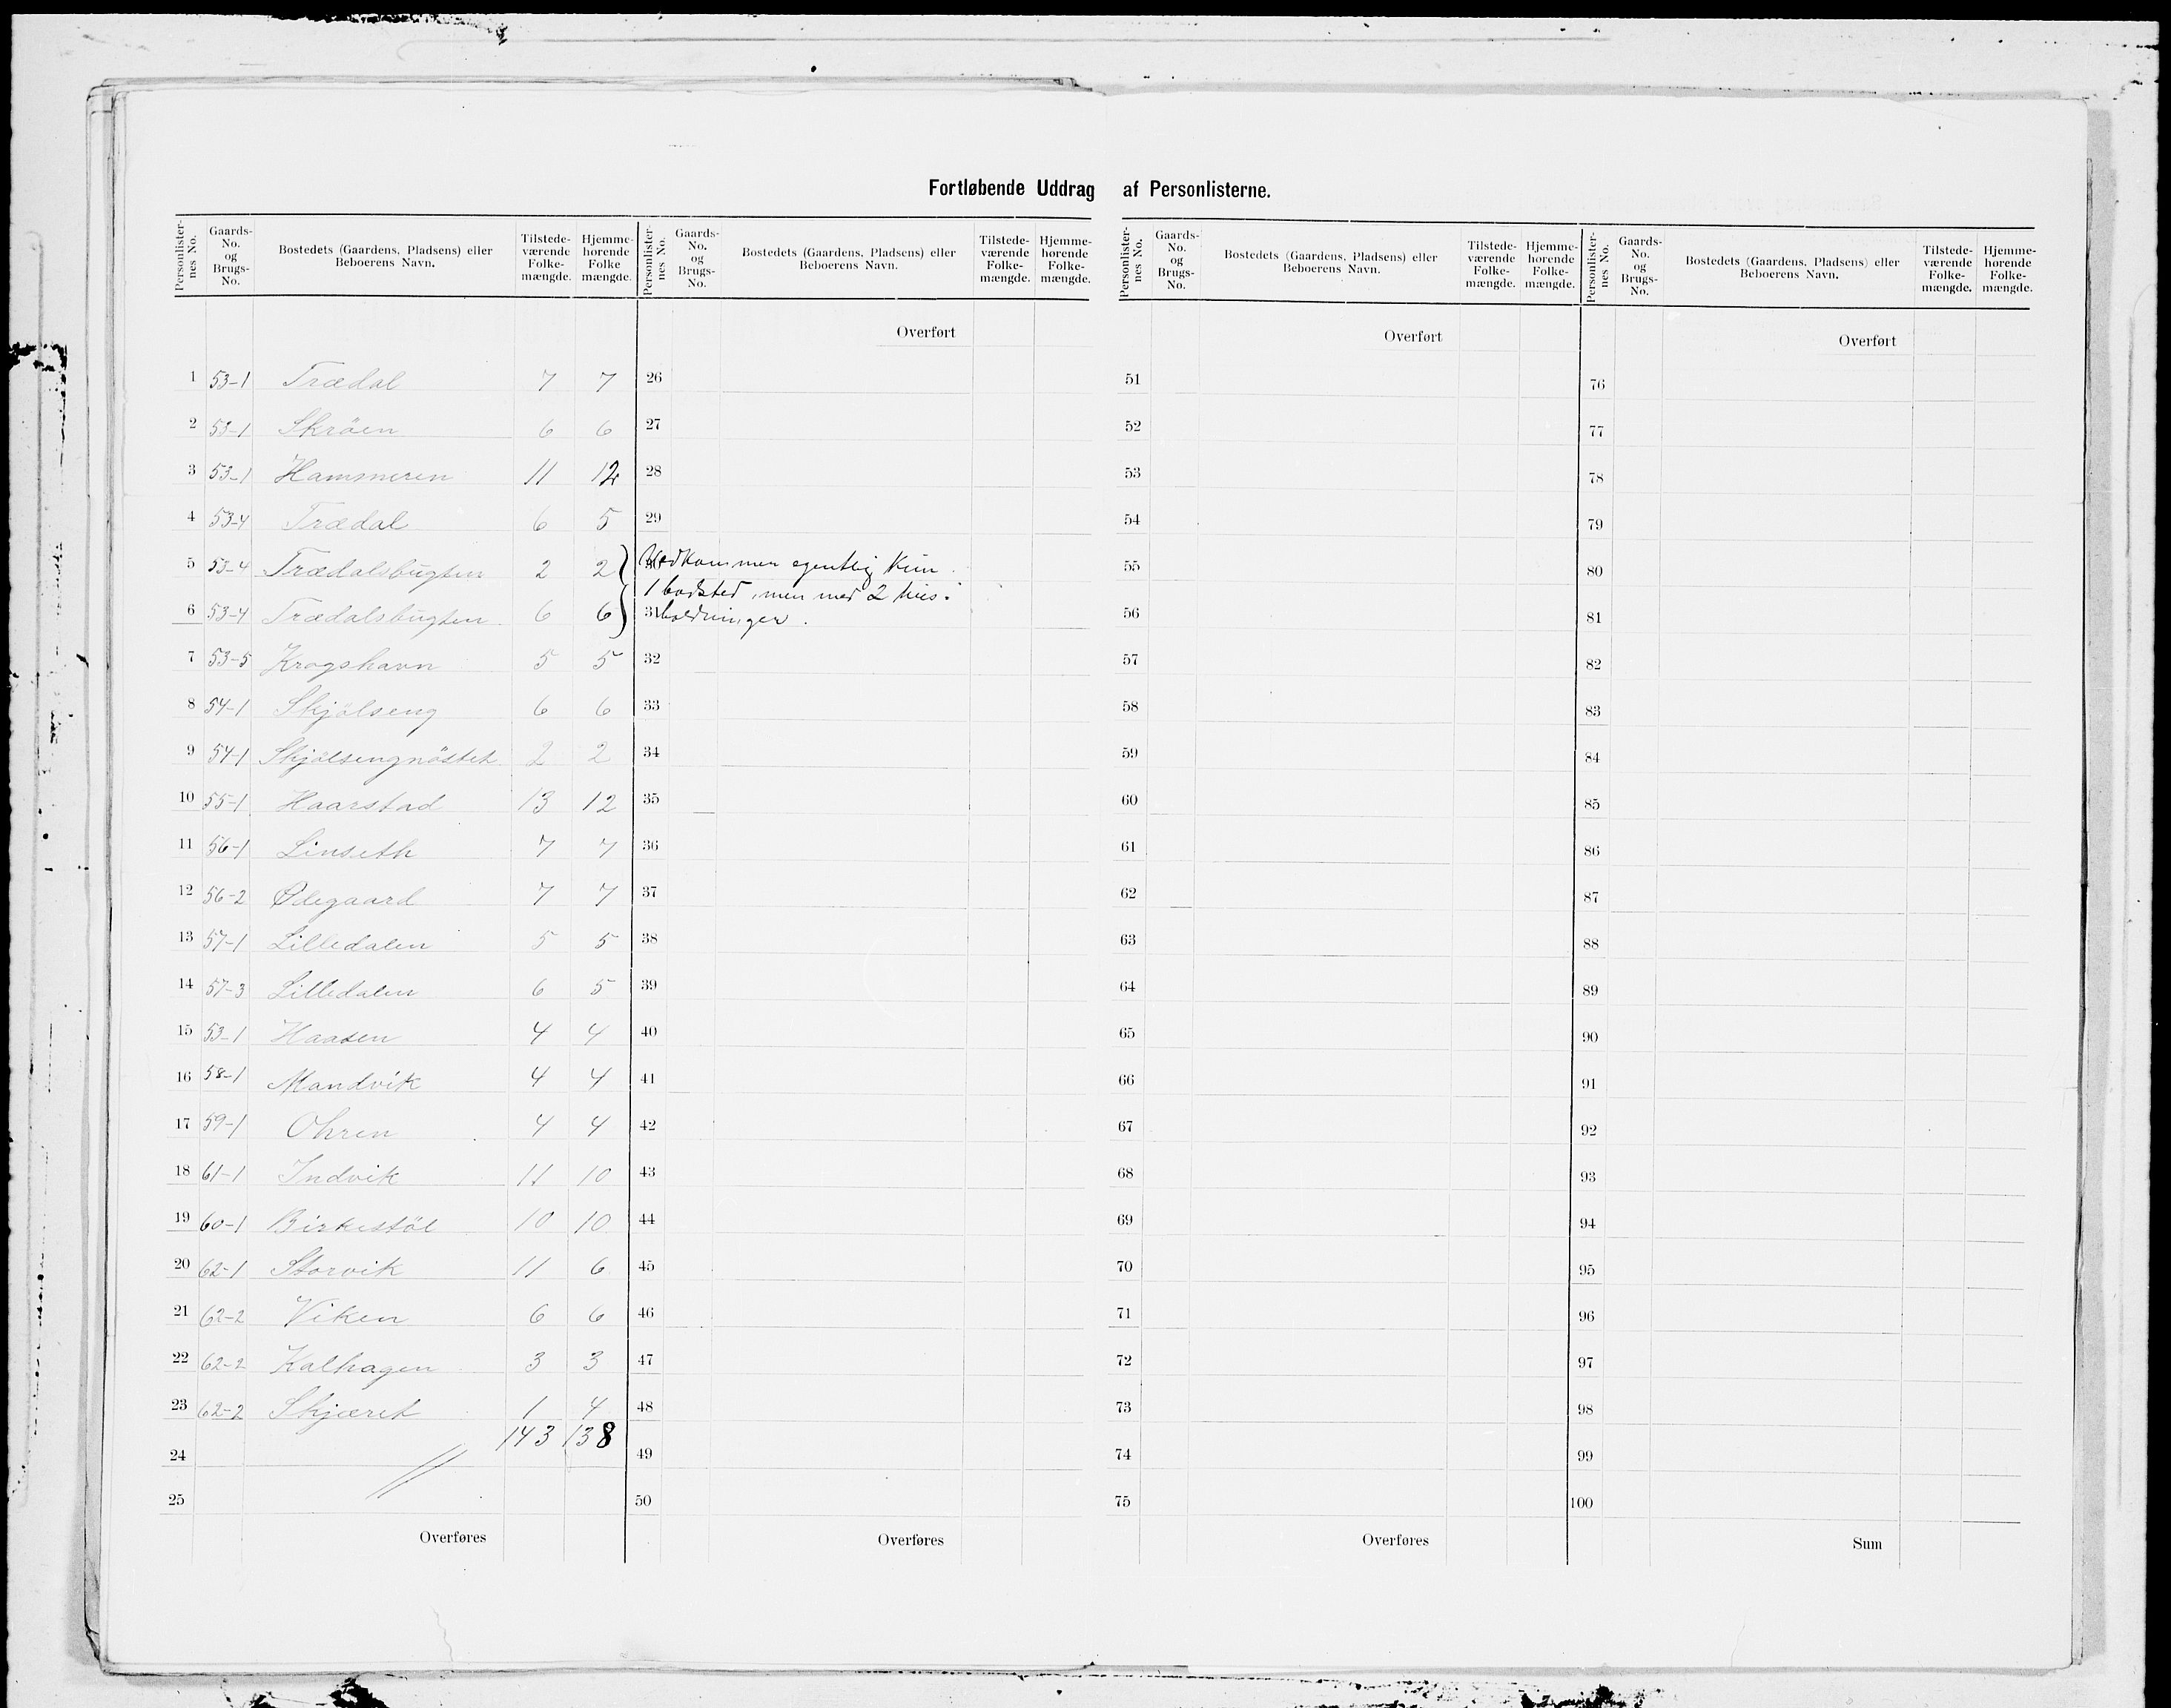 Fortløbende Uddrag af Personlisterne.
Personlisternes No. | Gaards-No. og Brugs-No. | Bostedets (Gaardens, Pladsens) eller Beboerens Navn. | Tilstedeværende Folkemængde. | Hjemmehørende Folkemængde.
Personlisternes No. | Gaards-No. og Brugs-No. | Bostedets (Gaardens, Pladsens) eller Beboerens Navn. | Tilstedeværende Folkemængde. | Hjemmehørende Folkemængde.
Personlisternes No. | Gaards-No. og Brugs-No. | Bostedets (Gaardens, Pladsens) eller Beboerens Navn. | Tilstedeværende Folkemængde. | Hjemmehørende Folkemængde.
Personlisternes No. | Gaards-No. og Brugs-No. | Bostedets (Gaardens, Pladsens) eller Beboerens Navn. | Tilstedeværende Folkemængde. | Hjemmehørende Folkemængde.
1 53-1 Trædal 7 7
2 53-1 Skröen 6 6
3 53-1 Hammeren 11 12
4 53-4 Trædal 6 5
5 53-4 Trædalsbugten 2 2
6 53-4 Trædalsbugten 6 6
7 53-5 Krogshavn 5 5
8 54-1 Skjölseng 6 6
9 54-1 Skjölsengnöstet 2 2
10 55-1 Haarstad 13 12
11 56-1 Linseth 7 7
12 56-2 Ødegaard 7 7
13 57-1 Lilledalen 5 5
14 57-3 Lilledalen 6 5
15 53-1 Haasen 4 4
16 58-1 Mandvik 4 4
17 59-1 Ohren 4 4
18 61-1 Indvik 11 10
19 60-1 Birkestöl 10 10
20 62-1 Storvik 11 6
21 62-2 Viken 6 6
22 62-2 Kalhagen 3 3
23 62-2 Skjæret 1 4
143 138
24
25
Overføres
Overført
26
27
28
29
Vedkommer egentlig kun
1 bosted, men med 2 hus-
31 holdninger.
32
33
34
35
36
37
38
39
40
41
42
43
44
45
46
47
48
49
50
Overføres
Overført
51
52
53
54
55
56
57
58
59
60
61
62
63
64
65
66
67
68
69
70
71
72
73
74
75
Overføres
Overført
76
77
78
79
80
81
82
83
84
85
86
87
88
89
90
91
92
93
94
95
96
97
98
99
100
Sum